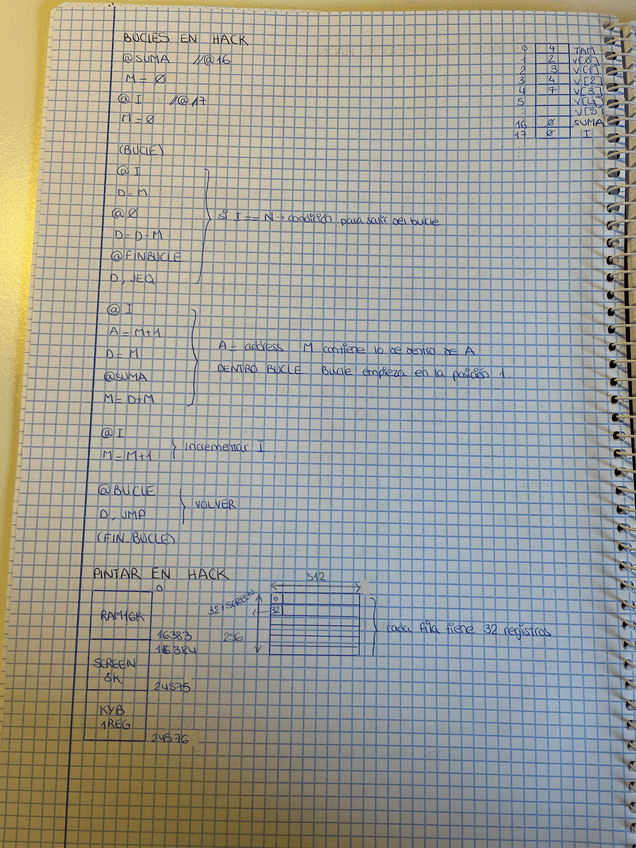 BUCLES EN HACK
@SUMA //@16
M=Ø
@I //@17
M=Ø
0 4 TAM
1 2 V[0]
2 3 V[1]
3 4 V[2]
4 7 V[3]
5 V[4]
: V[5]
16 Ø SUMA
17 Ø I
(BUCLE)
@I
D=M
@Ø
D=D-M
@FINBUCLE
D, JEQ
Si I == N → condición para salir del bucle
@I
A=M+1
D=M
@SUMA
M=D+M
A = address M contiene lo de dentro de A
DENTRO BUCLE Bucle empieza en la posición 1
@I
M=M+1
incrementar I
@BUCLE
D, JMP
VOLVER
(FIN BUCLE)
PINTAR EN HACK
0
RAM16K
16383
16384
SCREEN
8K
24575
KYB
1REG
24576
512
32+SCREEN
0
32
256
cada fila tiene 32 registros